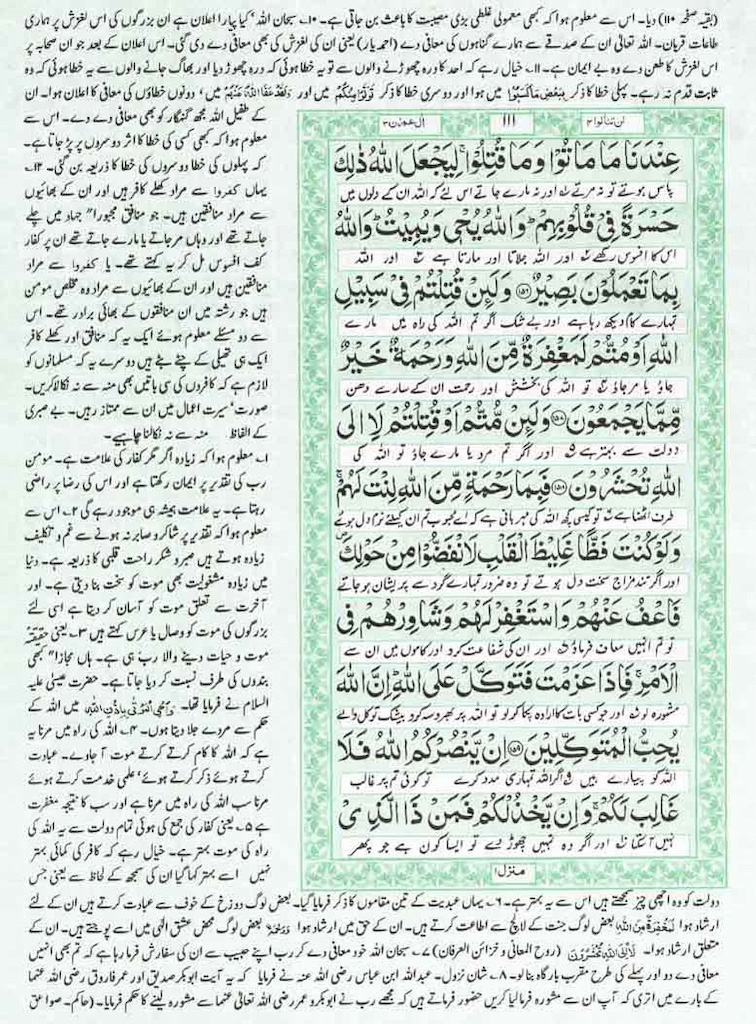 (بقیہ صفحہ ۱۱۰) دیا۔ اس سے معلوم ہوا کہ کبھی معمولی غلطی بڑی مصیبت کا باعث بن جاتی ہے۔ ۱۰۔ سبحان اللہ' کیا پیارا اعلان ہے ان بزرگوں کی اس لغزش پر ہماری
طاعات قربان۔ اللہ تعالیٰ ان کے صدقے سے ہمارے گناہوں کی معافی دے (احمد یار) یعنی ان کی لغزش کی بھی معافی دے دی گئی۔ اس اعلان کے بعد جو ان صحابہ پر
اس لغزش کا طعن دے وہ بے ایمان ہے۔ ۱۱۔ خیال رہے کہ احد کا درہ چھوڑنے والوں سے تو یہ خطا ہوئی کہ درہ چھوڑ دیا اور بھاگ جانے والوں سے یہ خطا ہوئی کہ وہ
ثابت قدم نہ رہے۔ پہلی خطا کا ذکر بِبَعْضِ مَا كَسَبُوْا میں ہوا اور دوسری خطا کا ذکر تَوَلَّوْا مِنْكُمْ میں اور وَلَقَدْ عَفَا اللّٰهُ عَنْهُمْ میں' دونوں خطاؤں کی معافی کا اعلان ہوا۔ ان
کے طفیل اللہ مجھ گنہگار کو بھی معافی دے دے۔ اس سے
معلوم ہوا کہ بھی کسی کی خطا کا اثر دوسروں پر پڑ جاتا ہے۔
کہ پہلوں کی خطا دوسروں کی خطا کا ذریعہ بن گئی۔ ۱۲۔
یہاں کفروا سے مراد کھلے کافر ہیں اور ان کے بھائیوں
سے مراد منافقین ہیں۔ جو منافق مجبوراً جہاد میں چلے
جاتے تھے اور وہاں مر جاتے یا مارے جاتے تھے ان پر کفار
کف افسوس مل کر یہ کہتے تھے۔ یا کفروا سے مراد
منافقین ہیں اور ان کے بھائیوں سے مراد وہ مخلص مومن
ہیں جو رشتہ میں ان منافقوں کے بھائی برادر تھے۔ اس
سے دو مسئلے معلوم ہوئے ایک یہ کہ منافق اور کھلے کافر
ایک ہی تھیلی کے چٹے بٹے ہیں دوسرے یہ کہ مسلمانوں کو
لازم ہے کہ کافروں کی سی باتیں بھی منہ سے نہ نکالا کریں۔
صورت' سیرت اعمال میں ان سے ممتاز رہیں۔ بے صبری
کے الفاظ منہ سے نہ نکالنا چاہیے۔
۱۔ معلوم ہوا کہ زیادہ اگر مگر کفار کی علامت ہے۔ مومن
رب کی تقدیر پر ایمان رکھتا ہے اور اس کی رضا پر راضی
رہتا ہے۔ یہ علامت ہمیشہ ہی موجود رہے گی ۲۔ اس سے
معلوم ہوا کہ تقدیر پر شاکر و صابر نہ ہونے سے غم و تکلیف
زیادہ ہوتے ہیں صبر و شکر راحت قلبی کا ذریعہ ہے۔ دنیا
میں زیادہ مشغولیت بھی موت کو سخت بنا دیتی ہے۔ اور
آخرت سے تعلق موت کو آسان کر دیتا ہے اسی لئے
بزرگوں کی موت کو وصال یا عرس کہتے ہیں ۳۔ یعنی حقیقتہً
موت و حیات دینے والا رب ہی ہے۔ ہاں مجازاً" کبھی
بندوں کی طرف نسبت کر دیا جاتا ہے۔ حضرت عیسیٰ علیہ
السلام نے فرمایا تھا۔ وَاُحْيِ الْمَوْتٰى بِاِذْنِ اللّٰهِ میں اللہ کے
حکم سے مردے جلا دیتا ہوں۔ ۴۔ اللہ کی راہ میں مرنا یہ
ہے کہ اللہ کا کام کرتے کرتے موت آ جاوے۔ عبادت
کرتے ہوئے ذکر کرتے ہوئے' علمی خدمت کرتے ہوئے
مرنا سب اللہ کی راہ میں مرنا ہے اور سب کا نتیجہ مغفرت
ہے ۵۔ یعنی کفار کی جمع کی ہوئی تمام دولت سے یہ اللہ کی
راہ کی موت بہتر ہے۔ خیال رہے کہ کافر کی کمائی بہتر
نہیں اسے بہتر کہا گیا ان کی سمجھ کے لحاظ سے یعنی جس
لن تنالوا ۴ ۱۱۱ اٰل عمرٰن ۳
عِنْدَنَا مَا مَاتُوْا وَمَا قُتِلُوْا ۚ لِيَجْعَلَ اللّٰهُ ذٰلِكَ
پاس ہوتے تو نہ مرتے اور نہ مارے جاتے اس لئے کہ اللہ ان کے دلوں میں
حَسْرَةً فِيْ قُلُوْبِهِمْ ؕ وَاللّٰهُ يُحْيٖ وَيُمِيْتُ ؕ وَاللّٰهُ
اس کا افسوس رکھے اور اللہ جلاتا اور مارتا ہے اور اللہ
بِمَا تَعْمَلُوْنَ بَصِيْرٌ ۝۱۵۶ وَلَئِنْ قُتِلْتُمْ فِيْ سَبِيْلِ
تمہارے کام دیکھ رہا ہے اور بے شک اگر تم اللہ کی راہ میں مارے
اللّٰهِ اَوْ مُتُّمْ لَمَغْفِرَةٌ مِّنَ اللّٰهِ وَرَحْمَةٌ خَيْرٌ
جاؤ یا مر جاؤ تو اللہ کی بخشش اور رحمت ان کے سارے دھن
مِّمَّا يَجْمَعُوْنَ ۝۱۵۷ وَلَئِنْ مُّتُّمْ اَوْ قُتِلْتُمْ لَاِالَى
دولت سے بہتر ہے اور اگر تم مرو یا مارے جاؤ تو اللہ کی
اللّٰهِ تُحْشَرُوْنَ ۝۱۵۸ فَبِمَا رَحْمَةٍ مِّنَ اللّٰهِ لِنْتَ لَهُمْ ۚ
طرف اٹھنا ہے تو کیسی کچھ اللہ کی مہربانی ہے کہ اے محبوب تم ان کیلئے نرم دل ہوئے
وَلَوْ كُنْتَ فَظًّا غَلِيْظَ الْقَلْبِ لَانْفَضُّوْا مِنْ حَوْلِكَ ۪
اور اگر تند مزاج سخت دل ہوتے تو وہ ضرور تمہارے گرد سے پریشان ہو جاتے
فَاعْفُ عَنْهُمْ وَاسْتَغْفِرْ لَهُمْ وَشَاوِرْهُمْ فِي
تو تم انہیں معاف فرماؤ اور ان کی شفاعت کرو اور کاموں میں ان سے
الْاَمْرِ ۚ فَاِذَا عَزَمْتَ فَتَوَكَّلْ عَلَى اللّٰهِ ؕ اِنَّ اللّٰهَ
مشورہ لو اور جو کسی بات کا ارادہ پکا کر لو تو اللہ پر بھروسہ کرو بیشک توکل والے
يُحِبُّ الْمُتَوَكِّلِيْنَ ۝۱۵۹ اِنْ يَّنْصُرْكُمُ اللّٰهُ فَلَا
اللہ کو پیارے ہیں اگر اللہ تمہاری مدد کرے تو کوئی تم پر غالب
غَالِبَ لَكُمْ ۚ وَاِنْ يَّخْذُلْكُمْ فَمَنْ ذَا الَّذِيْ
نہیں آسکتا اور اگر وہ تمہیں چھوڑ دے تو ایسا کون ہے جو پھر
منزل ۱
دولت کو وہ اچھی چیز سمجھتے ہیں اس سے یہ بہتر ہے۔ ۶۔ یہاں عبدیت کے تین مقاموں کا ذکر فرمایا گیا۔ بعض لوگ دوزخ کے خوف سے عبادت کرتے ہیں ان کے لئے
ارشاد ہوا لَمَغْفِرَةٌ مِّنَ اللّٰهِ بعض لوگ جنت کے لالچ سے اطاعت کرتے ہیں۔ ان کے حق میں ارشاد ہوا وَرَحْمَةٌ بعض لوگ محض عشق الٰہی میں اسے پوجتے ہیں۔ ان کے
متعلق ارشاد ہوا۔ لَاِالَى اللّٰهِ تُحْشَرُوْنَ (روح المعانی و خزائن العرفان) ۷۔ سبحان اللہ خود معافی دے کر رب اپنے حبیب سے ان کی سفارش فرما رہا ہے کہ تم بھی انہیں
معافی دے دو اور پہلے کی طرح مقرب بارگاہ بنا لو۔ ۸۔ شان نزول۔ عبداللہ ابن عباس رضی اللہ عنہ نے فرمایا کہ یہ آیت ابوبکر صدیق اور عمر فاروق رضی اللہ عنہما
کے بارے میں اتری کہ آپ ان سے مشورہ فرمالیا کریں حضور فرماتے ہیں کہ مجھے رب نے ابوبکر و عمر رضی اللہ تعالیٰ عنہما سے مشورہ لینے کا حکم فرمایا۔ (حاکم۔ صواعق